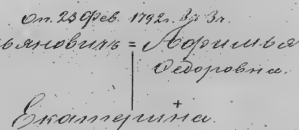 Оп. 23 Фев. 1792. Гр 3л.
ьяновичъ = Афимья
Ѳедоровна.
Екатерина.